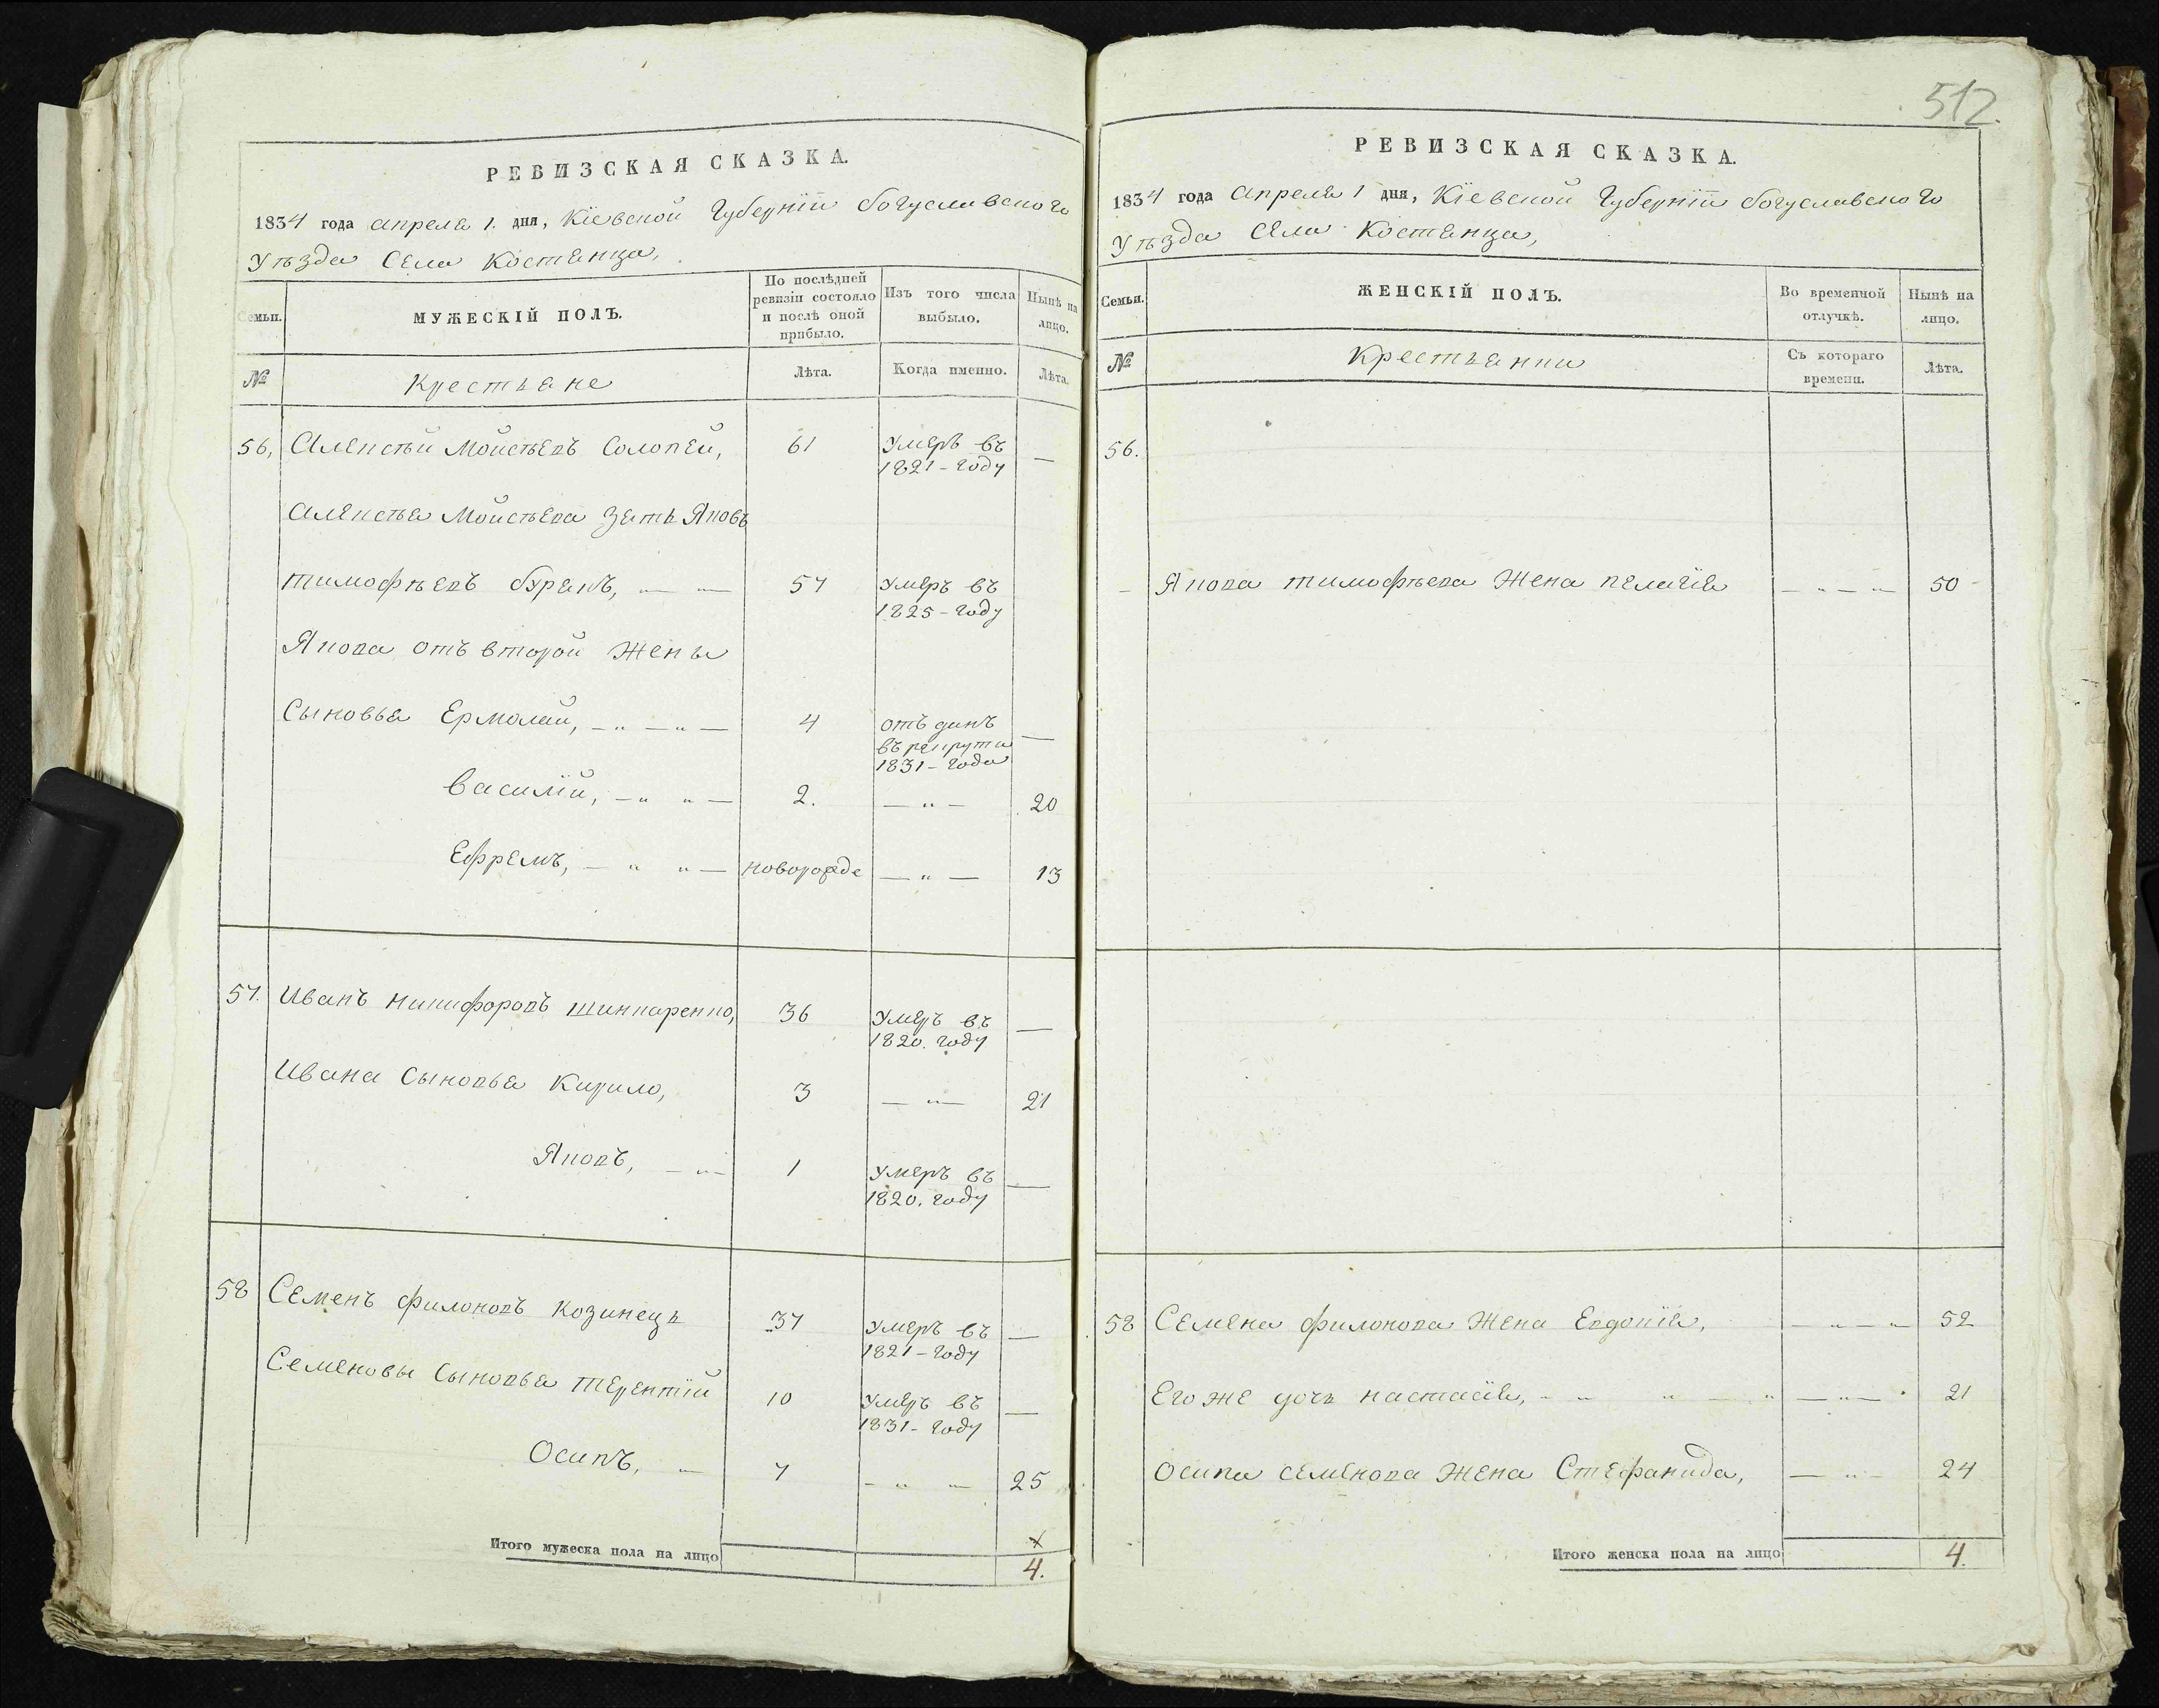 РЕВИЗСКАЯ СКАЗКА.
1834 года апреля 1. дня, Кіевской Губерніи богуславского
Уѣзда Села Костянца,
Семьи.
МУЖЕСКІЙ ПОЛЪ.
По послѣдней ревизіи состояло и послѣ оной прибыло.
Изъ того числа выбыло.
Нынѣ на лицо.
№
Крестьяне
Лѣта.
Когда именно.
Лѣта.
56, Алексѣй Мойсѣевъ Солопей, 61 Умеръ въ 1821-году —
Алексѣя Мойсѣева зять Яковъ
тимофѣевъ буракъ, — — 57 умеръ въ 1825-году
Якова отъ второй жены
Сыновья Ермолай, — „ — „ — 4 отъданъ въ рекруты 1831-года —
Василій, — „ „ — 2. — „ — 20
Ефремъ, — „ „ — новорожде — „ — 13
57. Иванъ никифоровъ шинкаренко, 36 Умеръ въ 1820. году —
Ивана Сыновья Кирило, 3 — „ — 21
Яковъ, — „ — 1 умеръ въ 1820. году —
58 Семенъ филоновъ козинецъ 37 умеръ въ 1821-году —
Семеновы Сыновья терентій 10 Умеръ въ 1831-году —
Осипъ, — 7 — „ — 25
Итого мужеска пола на лицо 4.
512.
РЕВИЗСКАЯ СКАЗКА.
1834 года апреля 1 дня, Кіевской Губерніи богуславского
Уѣзда Села Костянца,
Семьи.
ЖЕНСКІЙ ПОЛЪ.
Во временной отлучкѣ.
Нынѣ на лицо.
№
Крестьянки
Съ котораго времени.
Лѣта.
56.
— Якова тимофѣева жена пелагія — „ — „ 50
58 Семена филонова жена Евдокія, — „ — „ 52
Его же дочь настасія, — „ — 21
Осипа семенова жена Стефанида, — „ — 24
Итого женска пола на лицо 4.